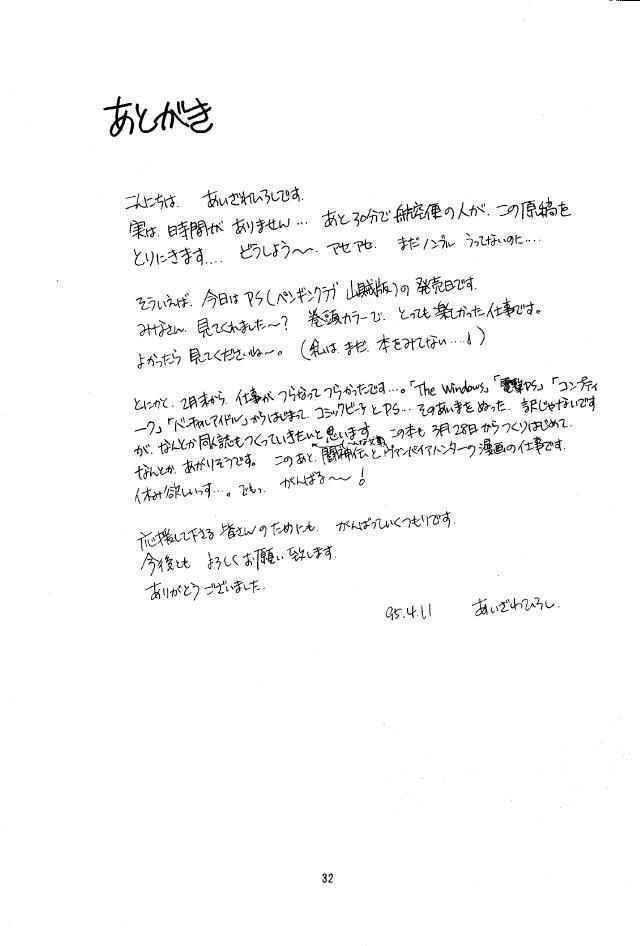 あとがき
こんにちは あいざわひろしです.
実は 時間が ありません… あと30分で 航空便の人が, この原稿を
とりにきます…. どうしよう〜. アセアセ. まだ ノンブル うってないのに….
そういえば, 今日は PS(ペンギンクラブ 山賊版)の 発売日です.
みなさん, 見てくれました〜? 巻頭カラーで, とっても 楽しかった 仕事です。
よかったら 見てくださいね〜。 (私は まだ 本をみてない….!)
とにかく, 2月末から, 仕事が つらなって つらかったです…。「The Windows」「電撃PS」「コンプティ
ーク」「バーチャルアイドル」からはじまって コミックピー子とPS… そのあいまをぬった, 訳じゃないです
が, なんとか 同人誌も つくっていきたいと 思います. この本も 3月28日から つくりはじめて,
なんとか, あがりそうです。 このあと, 闘神伝と ヴァンパイアハンターの 漫画の 仕事です.
休み 欲しいっす…。 でもっ がんばる〜!
応援して下さる 皆さんの ためにも, がんばっていくつもりです.
今後とも よろしく お願い 致します.
ありがとう ございました.
95.4.11 あいざわひろし.
32